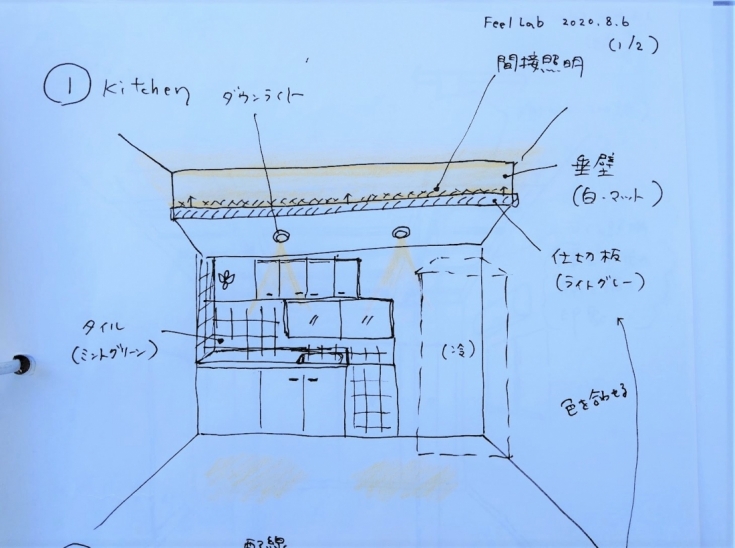 Feel Lab 2020.8.6
(1/2)
① Kitchen
ダウンライト
間接照明
垂壁
(白・マット)
仕切板
(ライトグレー)
タイル
(ミントグリーン)
(冷)
色を合わせる
配線